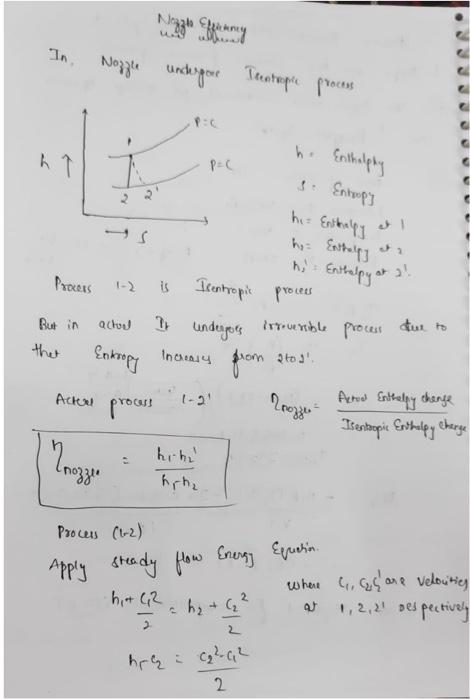 Nozzle Efficiency
In, Nozzle undergoes Isentropic process
P=C
1
h ↑
P=C
2 2'
→ S
h = Enthalphy
S = Entropy
h₁ = Enthalpy at 1
h₂ = Enthalpy at 2
h₂' = Enthalpy at 2'.
Process 1-2 is Isentropic process
But in actual It undergoes irreversible process due to
that Entropy Increases from 2 to 2'.
Actual process 1-2'
η nozzle = Actual Enthalpy change / Isentropic Enthalpy change
η nozzle = h₁-h₂' / h₁-h₂
Process (1-2)
Apply steady flow Energy Equation.
where C₁, C₂, C₂' are Velocities
at 1, 2, 2' respectively
h₁ + C₁²/2 = h₂ + C₂²/2
h₁-c₂ = C₂²-C₁² / 2